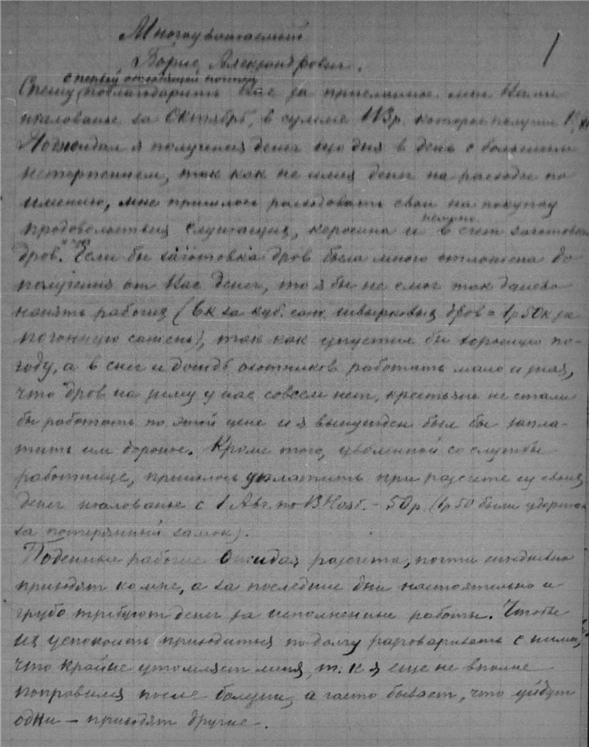 Многоуважаемый
1
Борис Александрович.
с первой отходящей почтой
Спешу поблагодарить Вас за присланное мне Вами
жалованье за Октябрь, в сумме 113р. которое получил
Поджидал я получения денег изо дня в день с большим
нетерпением, так как не имея денег на расходы по
имению, мне пришлось расходовать свои на покупку
продовольствия служащих, керосина и в счет заготовки
дров. Если бы заготовка дров была мною отложена до
получения от Вас денег, то я бы не смог так дешево
нанять рабочих (6к за куб. саж. швырковых дров = 1р50к за
погонную сажень), так как упустил бы хорошую по-
году, а в снег и дождь охотников работать мало и зная,
что дров на зиму у нас совсем нет, крестьяне не стали
бы работать по этой цене и я вынужден был бы запла-
тить им дороже. Кроме того, уволенной со службы
работнице, пришлось уплатить при расчете из своих
денег жалованье с 1 Авг. по 13 Нояб. - 50р. (1р50 были удержаны
за потерянный замок).
Поденные рабочие ожидая расчета, почти ежедневно
приходят ко мне, а за последние дни настоятельно и
грубо требуют денег за исполненные работы. Чтобы
их успокоить приходиться подолгу разговаривать с ними,
что крайне утомляет меня, т. к я еще не вполне
поправился после болезни, а часто бывает, что уйдут
одни - приходят другие.